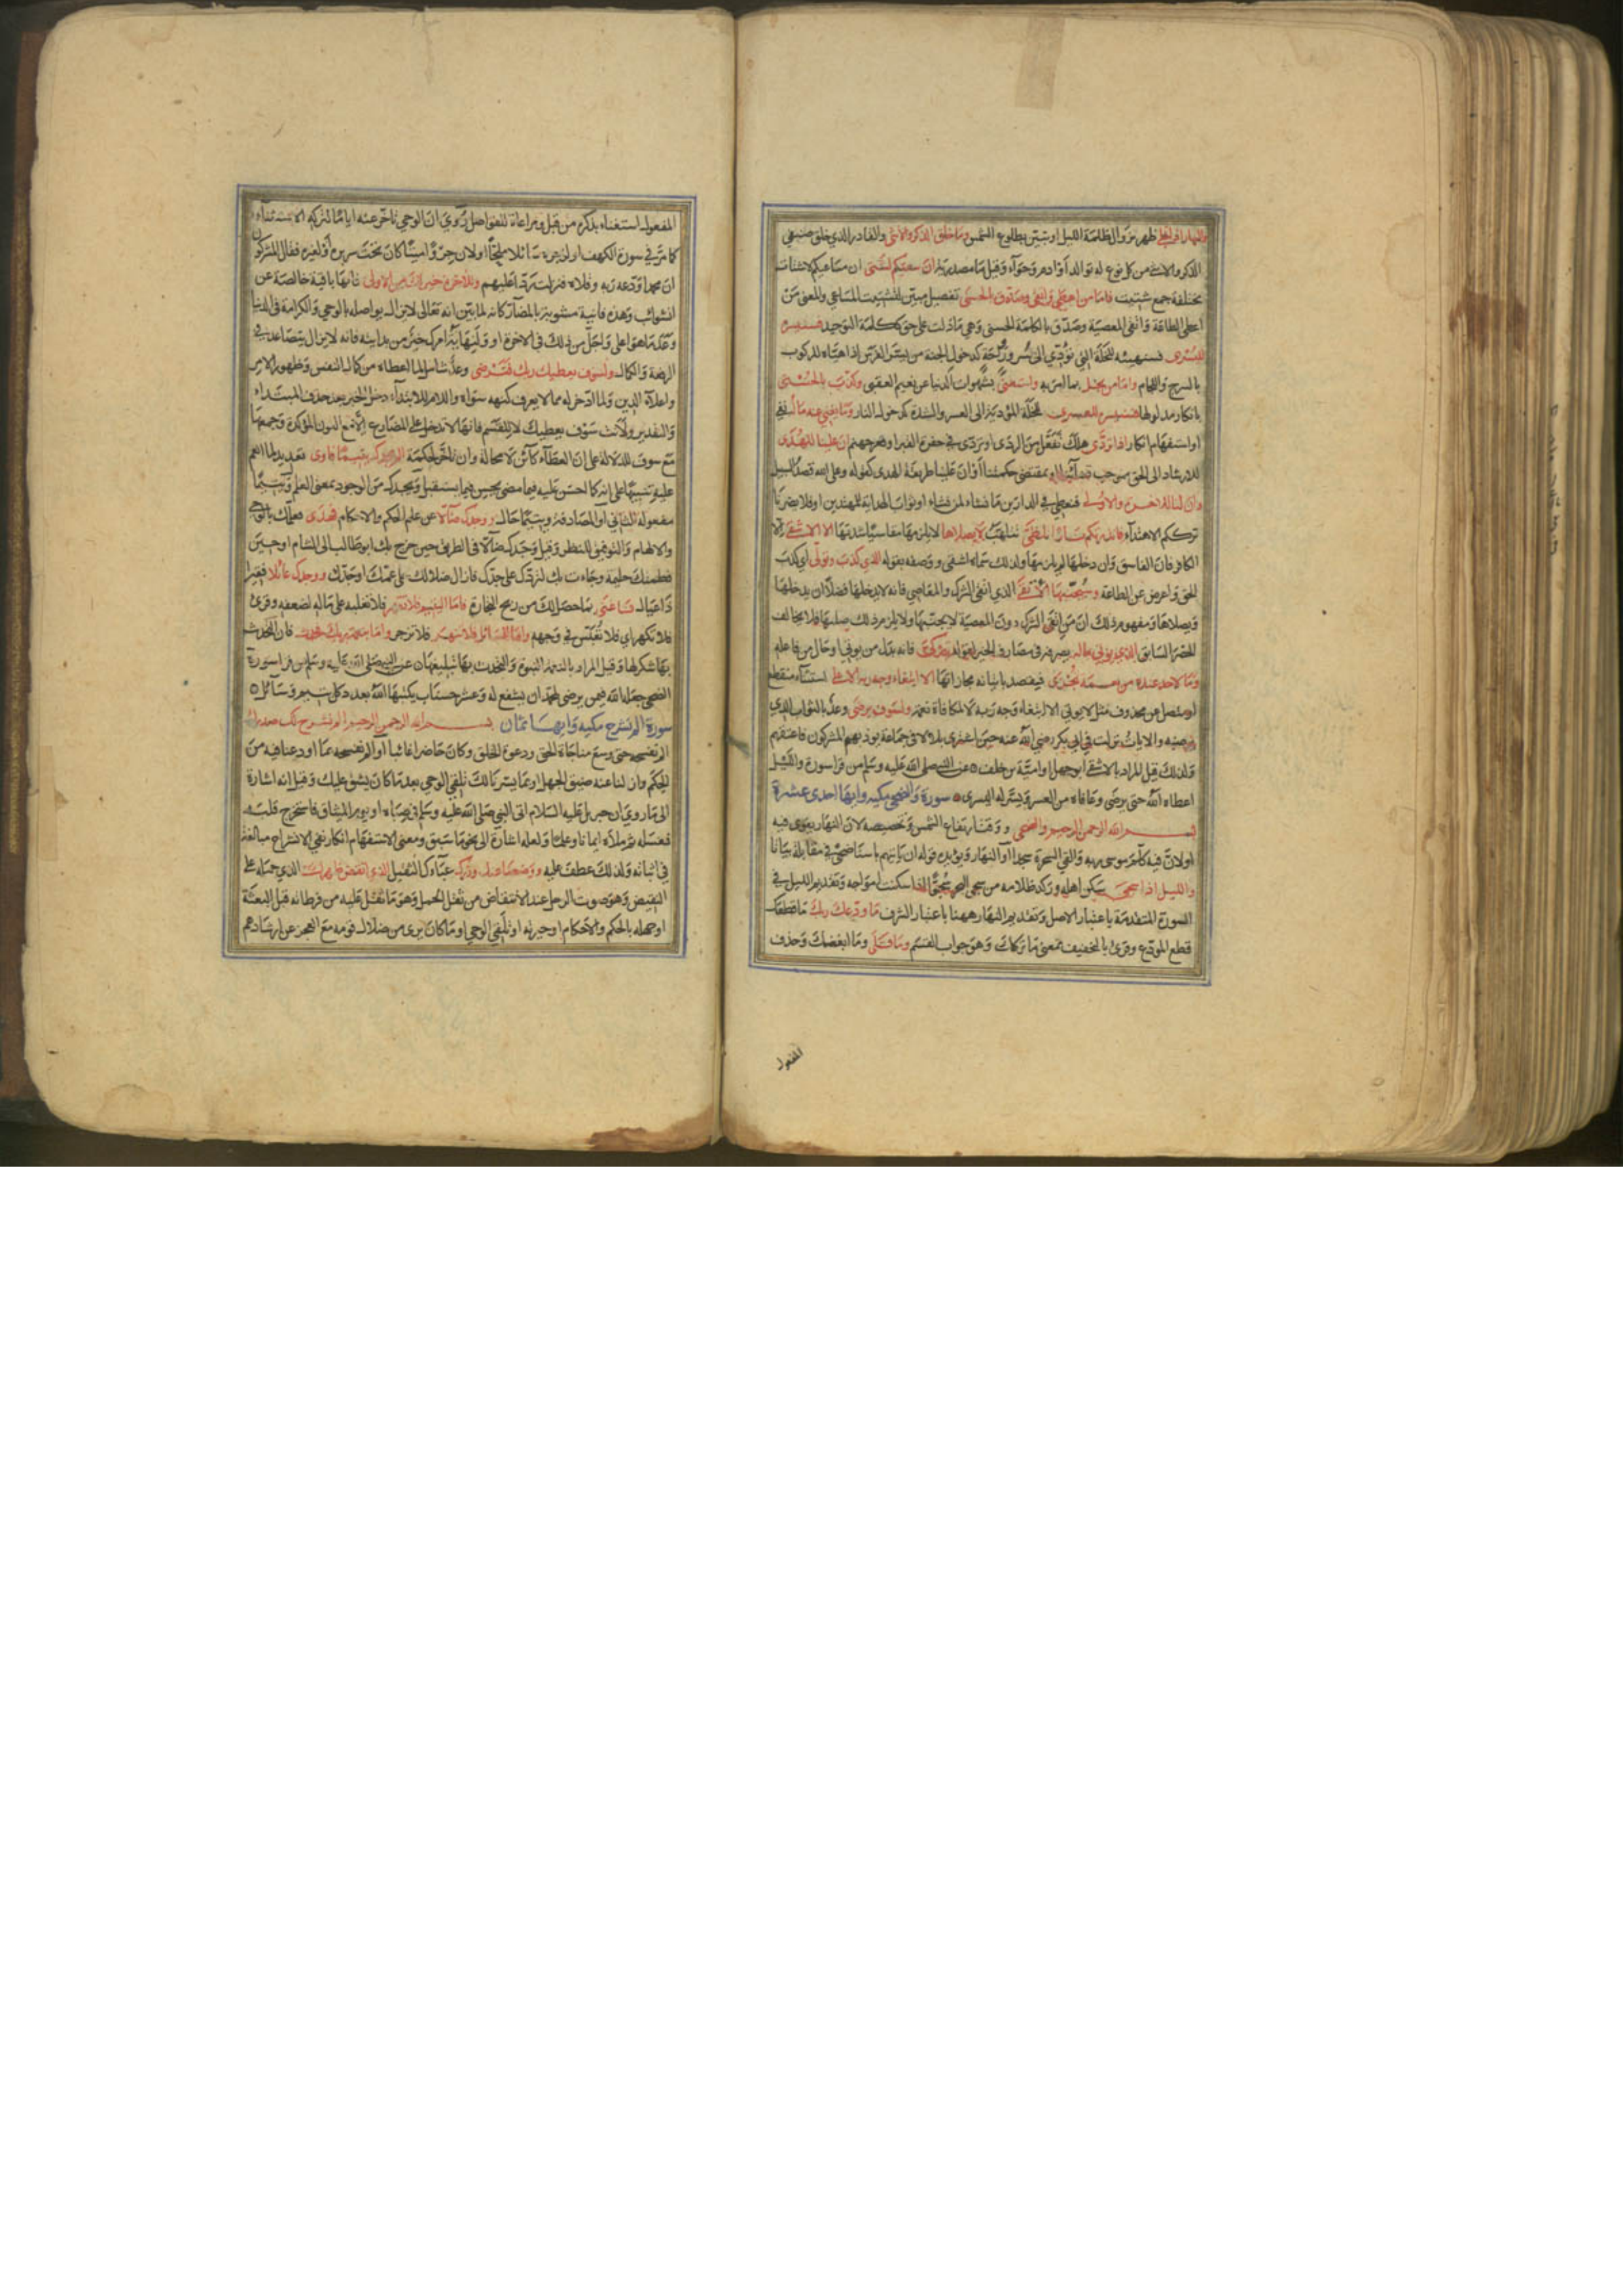 والنهار اذا تجلى ظهر بزوال ظلمة الليل او تبين بطلوع الشمس وما خلق الذكر والانثى والقادر الذي خلق صنفي
الذكر والانثى من كل نوع له توالد او ادم وحوآء وقيل ما مصدرية ان سعيكم لشتى ان مساعيكم لاشتات
مختلفة جمع شتيت فاما من اعطى واتقى وصدق بالحسنى تفصيل مبين لتشتت المساعي والمعنى من
اعطى الطاعة واتقى المعصية وصدق بالكلمة الحسنى وهي ما دلت على حق ككلمة التوحيد فسنيسره
لليسرى فسنهيئه للخلة التي تؤدي الى يسر وراحة كدخول الجنة من يسر الفرس اذا هيأه للركوب
بالسرج واللجام واما من بخل بما امر به واستغنى بشهوات الدنيا عن نعيم العقبى وكذب بالحسنى
بانكار مدلولها فسنيسره للعسرى للخلة المؤدية الى العسر والشدة كدخول النار وما يغني عنه ماله نفي
او استفهام انكار اذا تردى هلك تفعل من الردى او تردى في حفرة القبر او قعر جهنم ان علينا للهدى
للارشاد الى الحق بموجب قضائنا او بمقتضى حكمتنا او ان علينا طريقة الهدى كقوله وعلى الله قصد السبيل
وان لنا للاخرة والاولى فنعطي في الدارين ما نشاء لمن نشاء او ثواب الهداية للمهتدين او فلا يضرنا
ترككم الاهتدآء فانذرتكم نارا تلظى تتلهب لا يصلاها لا يلزمها مقاسيا شدتها الا الاشقى الا
الكافر فان الفاسق وان دخلها لم يلزمها ولذلك سماه اشقى ووصفه بقوله الذي كذب وتولى اي كذب
الحق واعرض عن الطاعة وسيجنبها الاتقى الذي اتقى الشرك والمعاصي فانه لا يدخلها فضلا ان يدخلها
ويصلاها ومفهوم ذلك ان من اتقى الشرك دون المعصية لا يجنبها ولا يلزم ذلك صليها فلا يخالف
الحصر السابق الذي يؤتي ماله يصرفه في مصارف الخير لقوله يتزكى فانه بدل من يؤتي او حال من فاعله
وما لاحد عنده من نعمة تجزى فيقصد بايتائه مجازاتها الا ابتغاء وجه ربه الاعلى استثنآء منقطع
او متصل عن محذوف مثل لا يؤتي الا ابتغاء وجه ربه لا لمكافاة نعمة ولسوف يرضى وعد بالثواب الذي
يرضيه والايات نزلت في ابي بكر رضي الله عنه حين اشترى بلالا في جماعة يوذيهم المشركون فاعتقهم
ولذلك قيل المراد بالاشقى ابو جهل او امية بن خلف عن النبي صلى الله عليه وسلم من قرا سورة والليل
اعطاه الله حتى يرضى وعافاه من العسر ويسر له اليسرى سورة والضحى مكيه وايها احدى عشرة
بسم الله الرحمن الرحيم والضحى ووقت ارتفاع الشمس وتخصيصه لان النهار يقوى فيه
او لان فيه كلم موسى ربه والقي السحرة سجدا او النهار ويؤيده قوله ان ياتيهم باسنا ضحى في مقابلة بياتا
والليل اذا سجى سكن اهله او ركد ظلامه من سجى البحر سجوا اذا سكنت امواجه وتقديم الليل في
السورة المتقدمة باعتبار الاصل وتقديم النهار ههنا باعتبار الشرف ما ودعك ربك ما قطعك
قطع المودع وقرئ بالتخفيف بمعنى ما تركك وهو جواب القسم وما قلى وما ابغضك وحذف
المفعول
المفعول استغناء بذكره من قبل ومراعاة للفواصل روي ان الوحي تاخر عنه اياما لتركه الاستثنآء
كما مر في سورة الكهف او لزجره سائلا ملحا او لان جروا ميتا كان تحت سريره او لغيره فقال المشركون
ان محمدا ودعه ربه وقلاه فنزلت ردا عليهم وللاخرة خير لك من الاولى فانها باقية خالصة عن
الشوائب وهذه فانية مشوبة بالمضار كانه لما بين انه تعالى لا يزال يواصله بالوحي والكرامة في الدنيا
وعد ما هو اعلى واجل من ذلك في الاخرة او ولنهاية امرك خير من بدايته فانه لا يزال يتصاعد في
الرفعة والكمال ولسوف يعطيك ربك فترضى وعد شامل لما اعطاه من كمال النفس وظهور الامر
واعلاء الدين ولما ادخر له مما لا يعرف كنهه سواه واللام للابتدآء دخل الخبر بعد حذف المبتداء
والتقدير ولانت سوف يعطيك لا للقسم فانها لا تدخل على المضارع الا مع النون المؤكدة وجمعها
مع سوف للدلالة على ان العطآء كائن لا محالة وان تاخر لحكمة الم يجدك يتيما فاوى تعديد لما انعم
عليه تنبيها على انه كما احسن عليه فيما مضى يحسن فيما يستقبل ويجدك من الوجود بمعنى العلم ويتيما
مفعوله الثاني او المصادفة ويتيما حال ووجدك ضالا عن علم الحكم والاحكام فهدى فعلمك بالوحي
والالهام والتوفيق للنظر وقيل وجدك ضآلا في الطريق حين خرج بك ابو طالب الى الشام او حين
فطمتك حليمة وجاءت بك لتردك على جدك فازال ضلالك على عمك او جدك ووجدك عائلا فقيرا
ذا عيال فاغنى بما حصل لك من ربح التجارة فاما اليتيم فلا تقهر فلا تغلبه على ماله لضعفه وقرئ
فلا تكهر اي فلا تعبس في وجهه واما السائل فلا تنهر فلا تزجر واما بنعمة ربك فحدث فان التحدث
بها شكرها وقيل المراد بالنعمة النبوة والتحدث بها تبليغها عن النبي صلى الله عليه وسلم من قرا سورة
الضحى جعله الله فيمن يرضى لمحمد ان يشفع له وعشر حسنات يكتبها الله بعدد كل يتيم وسآئل
سورة الم نشرح مكيه وايها ثمان بسم الله الرحمن الرحيم الم نشرح لك صدرك
الم نفسحه حتى وسع مناجاة الحق ودعوة الخلق وكان حاضرا غائبا او الم نفسحه بما اودعنا فيه من
الحكم وازلنا عنه ضيق الجهل او بما يسرنا لك تلقي الوحي بعد ما كان يشق عليك وقيل انه اشارة
الى ما روي ان جبريل عليه السلام اتى النبي صلى الله عليه وسلم في صباه او يوم الميثاق فاستخرج قلبه
فغسله ثم ملاه ايمانا وعلما ولعله اشارة الى نحو ما سبق ومعنى الاستفهام انكار نفي الانشراح مبالغة
في اثباته ولذلك عطف عليه ووضعنا عنك وزرك عبئك الثقيل الذي انقض ظهرك الذي حمله على
النقيض وهو صوت الرحل عند الانتقاض من ثقل الحمل وهو ما ثقل عليه من فرطاته قبل البعثة
او جهله بالحكم والاحكام او حيرته او تلقي الوحي او ما كان يرى من ضلال قومه مع العجز عن ارشادهم